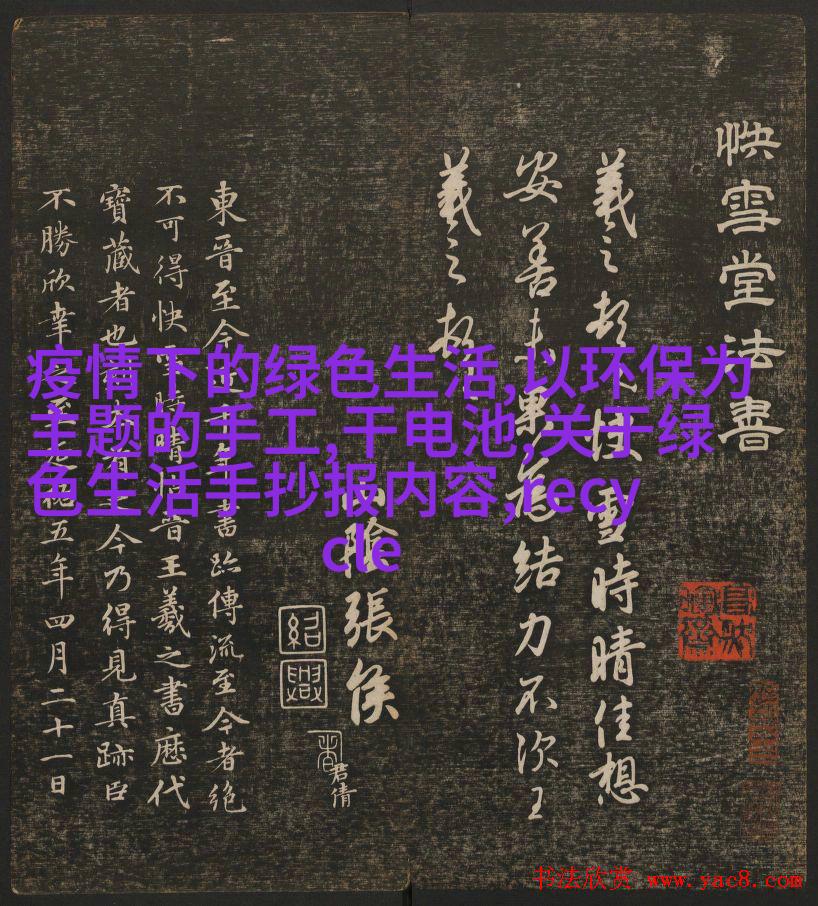 快雪堂法書
羲之頓首快雪時晴佳想
安善未果為結力不次王
羲之頓首
山陰張侯
紹興
君倩
東晉至今近千年書跡傳流至今者絕
不可得快雪時晴帖晉王羲之書歷代
寶藏者也刻本有之今乃得見真跡臣
不勝欣幸之至延祐五年四月二十一日
疫情下的绿色生活,以环保为
主题的手工,干电池,关于绿
色生活手抄报内容,recy
cle
书法欣赏 www.yac8.com